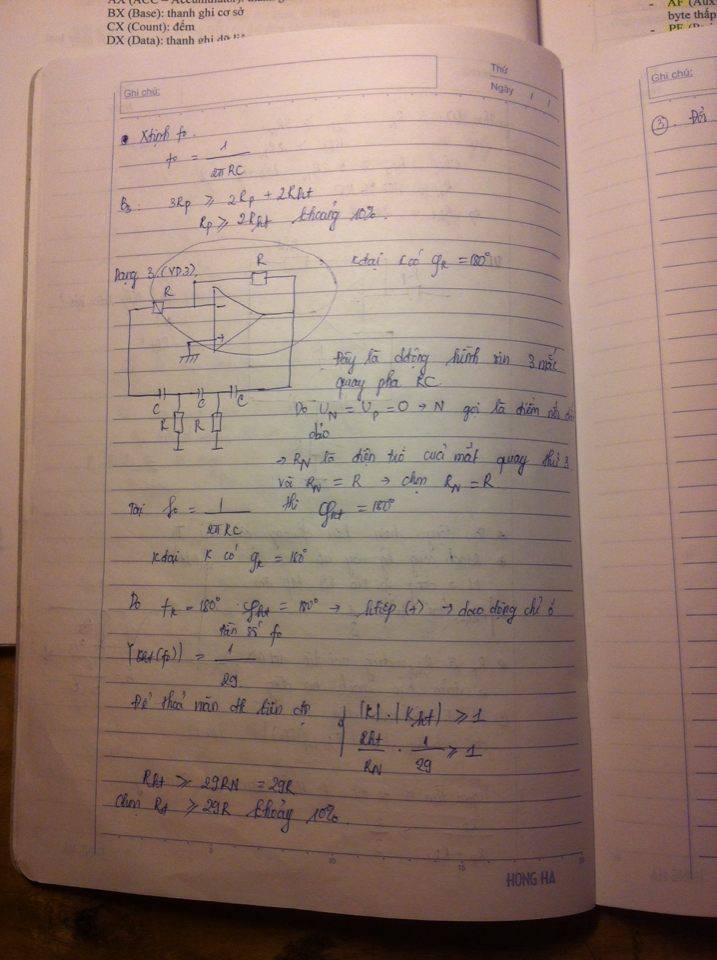 BX (Base): thanh ghi cơ sở
CX (Count): đếm
DX (Data): thanh ghi dữ
AF (Aux
byte thấp
Ghi chú:
Thứ
Ngày / /
Ghi chú:
• Xđịnh f₀.
f₀ = 1 / 2πRC
3Rp ≥ 2Rp + 2Rht
Rp ≥ 2Rht khoảng 10%.
Dạng 3 (VD3).
R
R
Kđại K có φK = 180°
- +
C C C
R R
Đây là động hình sin 3 mắt
quay pha RC
Do UN = UP = 0 → N gọi là điểm
đảo
→ RN là điện trở của mắt quay thứ 3
và RN = R → chọn RN = R
Tại f₀ = 1 / 2πRC thì φht = 180°
Kđại K có φK = 180°
Do φK = 180° φht = 180° → htiếp (+) → dao động chỉ ở
tần số f₀
|Kht(f₀)| = 1 / 29
Để thoả mãn đk biên độ |K| . |Kht| ≥ 1
Rht / RN . 1 / 29 ≥ 1
Rht ≥ 29RN = 29R
Chọn Rht ≥ 29R khoảng 10%.
HONG HA
③. Đổi